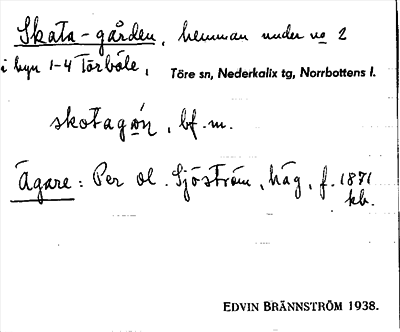 Skata-gården, hemman under no 2
i byn 1-4 Törböle, Töre sn, Nederkalix tg, Norrbottens l.
skotagɷ́n, bf. m.
Ägare: Per Ol. Sjöström, häg, f. 1871
kb.
EDVIN BRÄNNSTRÖM 1938.